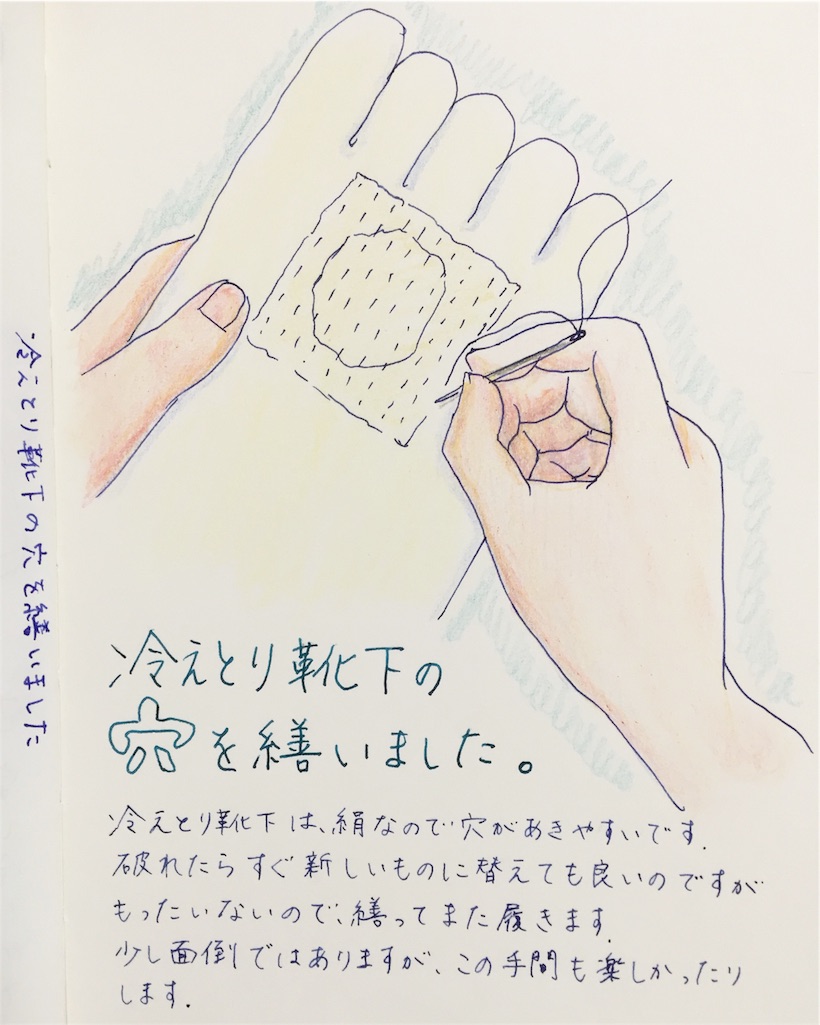 冷えとり靴下の穴を繕いました
冷えとり靴下の
穴を繕いました。
冷えとり靴下は、絹なので穴があきやすいです.
破れたらすぐ新しいものに替えても良いのですが
もったいないので、繕ってまた履きます.
少し面倒ではありますが、この手間も楽しかったり
します.